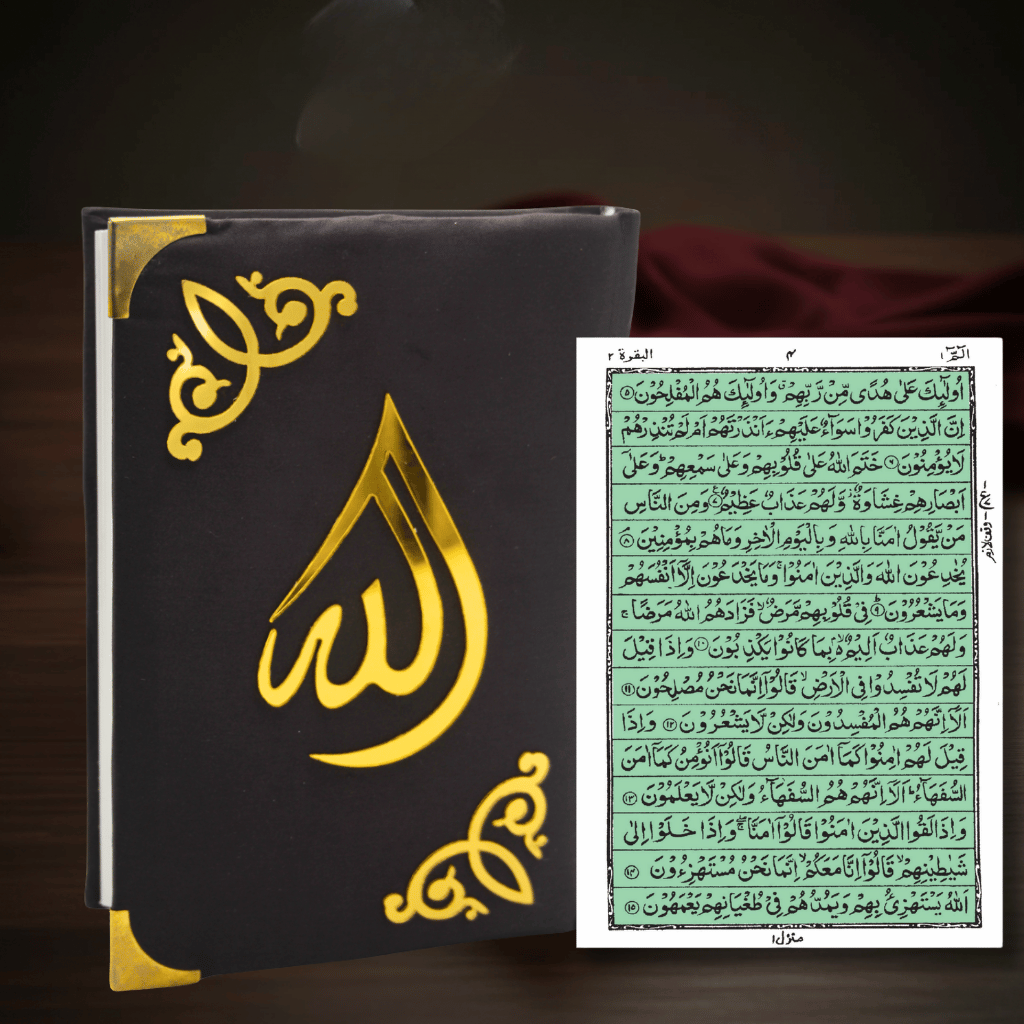 الله
البقرة ٢
٤
الٓمّٓ ١
اُولٰٓئِكَ عَلٰى هُدًى مِّنْ رَّبِّهِمْ ۙ وَاُولٰٓئِكَ هُمُ الْمُفْلِحُوْنَ ۝٥
اِنَّ الَّذِيْنَ كَفَرُوْا سَوَآءٌ عَلَيْهِمْ ءَاَنْذَرْتَهُمْ اَمْ لَمْ تُنْذِرْهُمْ
لَا يُؤْمِنُوْنَ ۝٦ خَتَمَ اللّٰهُ عَلٰى قُلُوْبِهِمْ وَعَلٰى سَمْعِهِمْ ؕ وَعَلٰٓى
اَبْصَارِهِمْ غِشَاوَةٌ ۫ وَّلَهُمْ عَذَابٌ عَظِيْمٌ ۝٧ وَمِنَ النَّاسِ
مَنْ يَّقُوْلُ اٰمَنَّا بِاللّٰهِ وَبِالْيَوْمِ الْاٰخِرِ وَمَا هُمْ بِمُؤْمِنِيْنَ ۝٨
يُخٰدِعُوْنَ اللّٰهَ وَالَّذِيْنَ اٰمَنُوْا ۚ وَمَا يَخْدَعُوْنَ اِلَّاۤ اَنْفُسَهُمْ
وَمَا يَشْعُرُوْنَ ۝٩ فِيْ قُلُوْبِهِمْ مَّرَضٌ ۙ فَزَادَهُمُ اللّٰهُ مَرَضًا ۚ
وَلَهُمْ عَذَابٌ اَلِيْمٌ ۢ ۙ بِمَا كَانُوْا يَكْذِبُوْنَ ۝١٠ وَاِذَا قِيْلَ
لَهُمْ لَا تُفْسِدُوْا فِي الْاَرْضِ ۙ قَالُوْۤا اِنَّمَا نَحْنُ مُصْلِحُوْنَ ۝١١
اَلَاۤ اِنَّهُمْ هُمُ الْمُفْسِدُوْنَ وَلٰكِنْ لَّا يَشْعُرُوْنَ ۝١٢ وَاِذَا
قِيْلَ لَهُمْ اٰمِنُوْا كَمَاۤ اٰمَنَ النَّاسُ قَالُوْۤا اَنُؤْمِنُ كَمَاۤ اٰمَنَ
السُّفَهَآءُ ؕ اَلَاۤ اِنَّهُمْ هُمُ السُّفَهَآءُ وَلٰكِنْ لَّا يَعْلَمُوْنَ ۝١٣
وَاِذَا لَقُوا الَّذِيْنَ اٰمَنُوْا قَالُوْۤا اٰمَنَّا ۖۚ وَاِذَا خَلَوْا اِلٰى
شَيٰطِيْنِهِمْ ۙ قَالُوْۤا اِنَّا مَعَكُمْ ۙ اِنَّمَا نَحْنُ مُسْتَهْزِءُوْنَ ۝١٤
اَللّٰهُ يَسْتَهْزِئُ بِهِمْ وَيَمُدُّهُمْ فِيْ طُغْيَانِهِمْ يَعْمَهُوْنَ ۝١٥
منزل ١